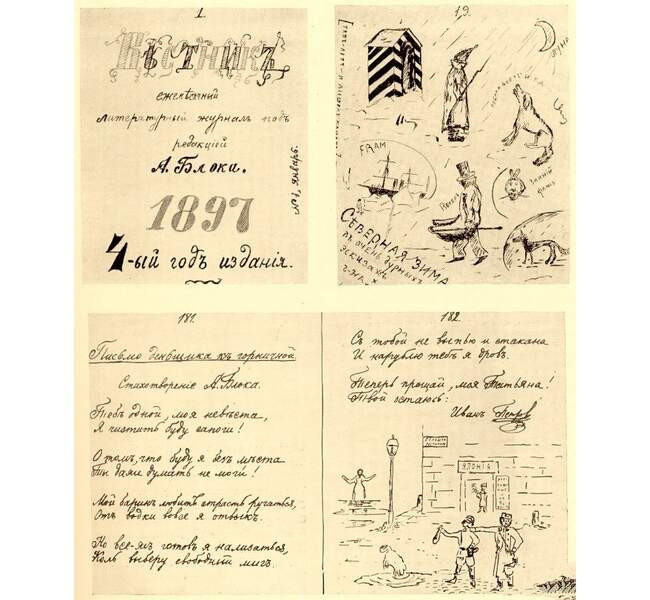 1.
Вѣстникъ
ежемѣсячный
литературный журналъ подъ
редакціей
А. Блока.
№1, январь.
1897
4-ый годъ изданія.
19.
ЛУНА
FRAM
СѢВЕРНАЯ ЗИМА
въ очень дурныхъ
эскизахъ
181.
Письмо деньщика къ горничной.
Стихотвореніе А. Блока.
Тебѣ одной, моя невѣста,
Я чистить буду сапоги!
О томъ, что буду я безъ мѣста
Ты даже думать не моги!
Мой баринъ любитъ страсть ругаться,
Отъ водки вовсе я отвыкъ.
Но все-жъ готовъ я нализаться,
Коль выберу свободный мигъ.
182.
Съ тобой не выпью и стакана
И нарублю тебѣ я дровъ.
Теперь прощай, моя Татьяна!
Твой остаюсь:
Иванъ Петровъ
ЯПОНІЯ